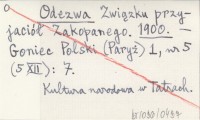 Odezwa Związku przy-
jaciół Zakopanego. 1900. —
Goniec Polski (Paryż) 1, nr 5
(5 XII): 7.
Kultura narodowa w Tatrach.